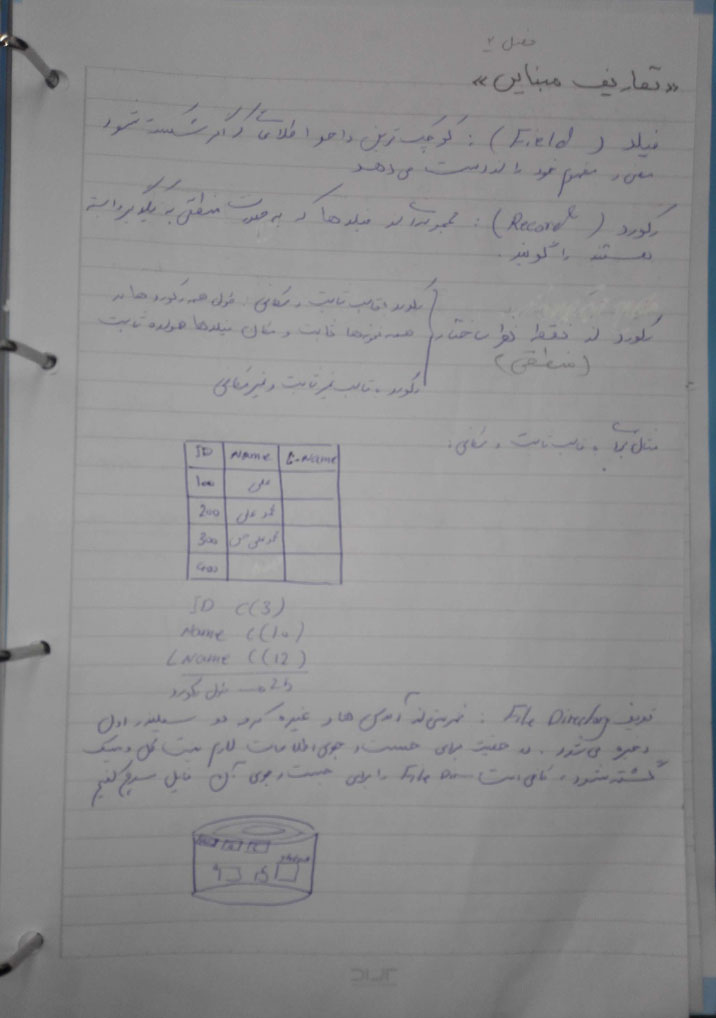 فصل ۲
«تعاریف مبنایی»
فیلد ( Field ) : کوچک ترین واحد اطلاعاتی که اگر شکسته شود
معنی و مفهوم خود را از دست می دهد
رکورد ( Record ) : مجموعه ای از فیلدها که به صورت منطقی به یکدیگر وابسته
هستند را گویند .
رکورد از نقطه نظر ساختار
(منطقی)
رکورد با قالب ثابت و مکانی : طول همه رکوردها در
همه ثابت و مکان فیلدها ثابت
رکورد با قالب غیر ثابت و غیر مکانی
مثال برای قالب ثابت و مکانی :
ID Name L.Name
100 علی
200 محمد علی
300 محمد علی
400
ID C(3)
Name C(10)
LName C(12)
25 طول رکورد
تعریف File Directory : آدرس ها و غیره که در سیلندر اول
ذخیره می شود . در حقیقت برای جست و جوی اطلاعات لازم نیست کل دیسک
گشته شود ، کافی است File Dir را برای جست و جوی آن فایل کنیم